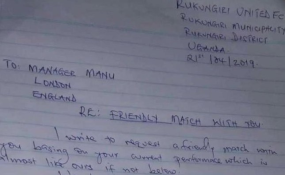 RUKUNGIRI UNITED FC
RUKUNGIRI MUNICIPALITY
RUKUNGIRI DISTRICT
UGANDA
21st /04/2019
TO: MANAGER MANU
LONDON
ENGLAND
RE: FRIENDLY MATCH WITH YOU
I write to request a friendly match with
you basing on your current performance which is
almost like ours if not below